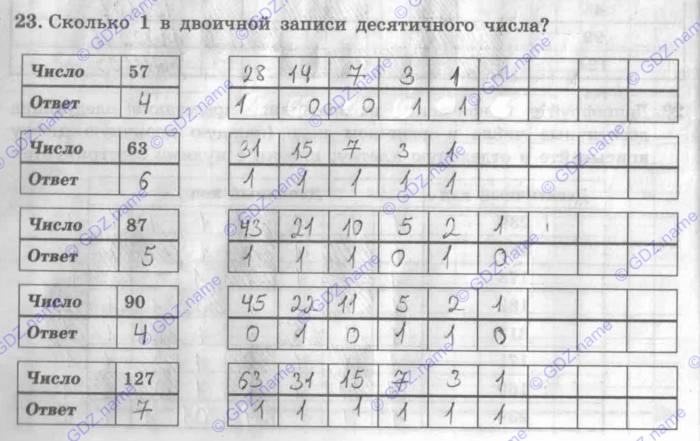 23. Сколько 1 в двоичной записи десятичного числа?
Число 57 28 14 7 3 1
Ответ 4 1 0 0 1 1
Число 63 31 15 7 3 1
Ответ 6 1 1 1 1 1
Число 87 43 21 10 5 2 1
Ответ 5 1 1 1 0 1 0
Число 90 45 22 11 5 2 1
Ответ 4 0 1 0 1 1 0
Число 127 63 31 15 7 3 1
Ответ 7 1 1 1 1 1 1
© GDZ.name